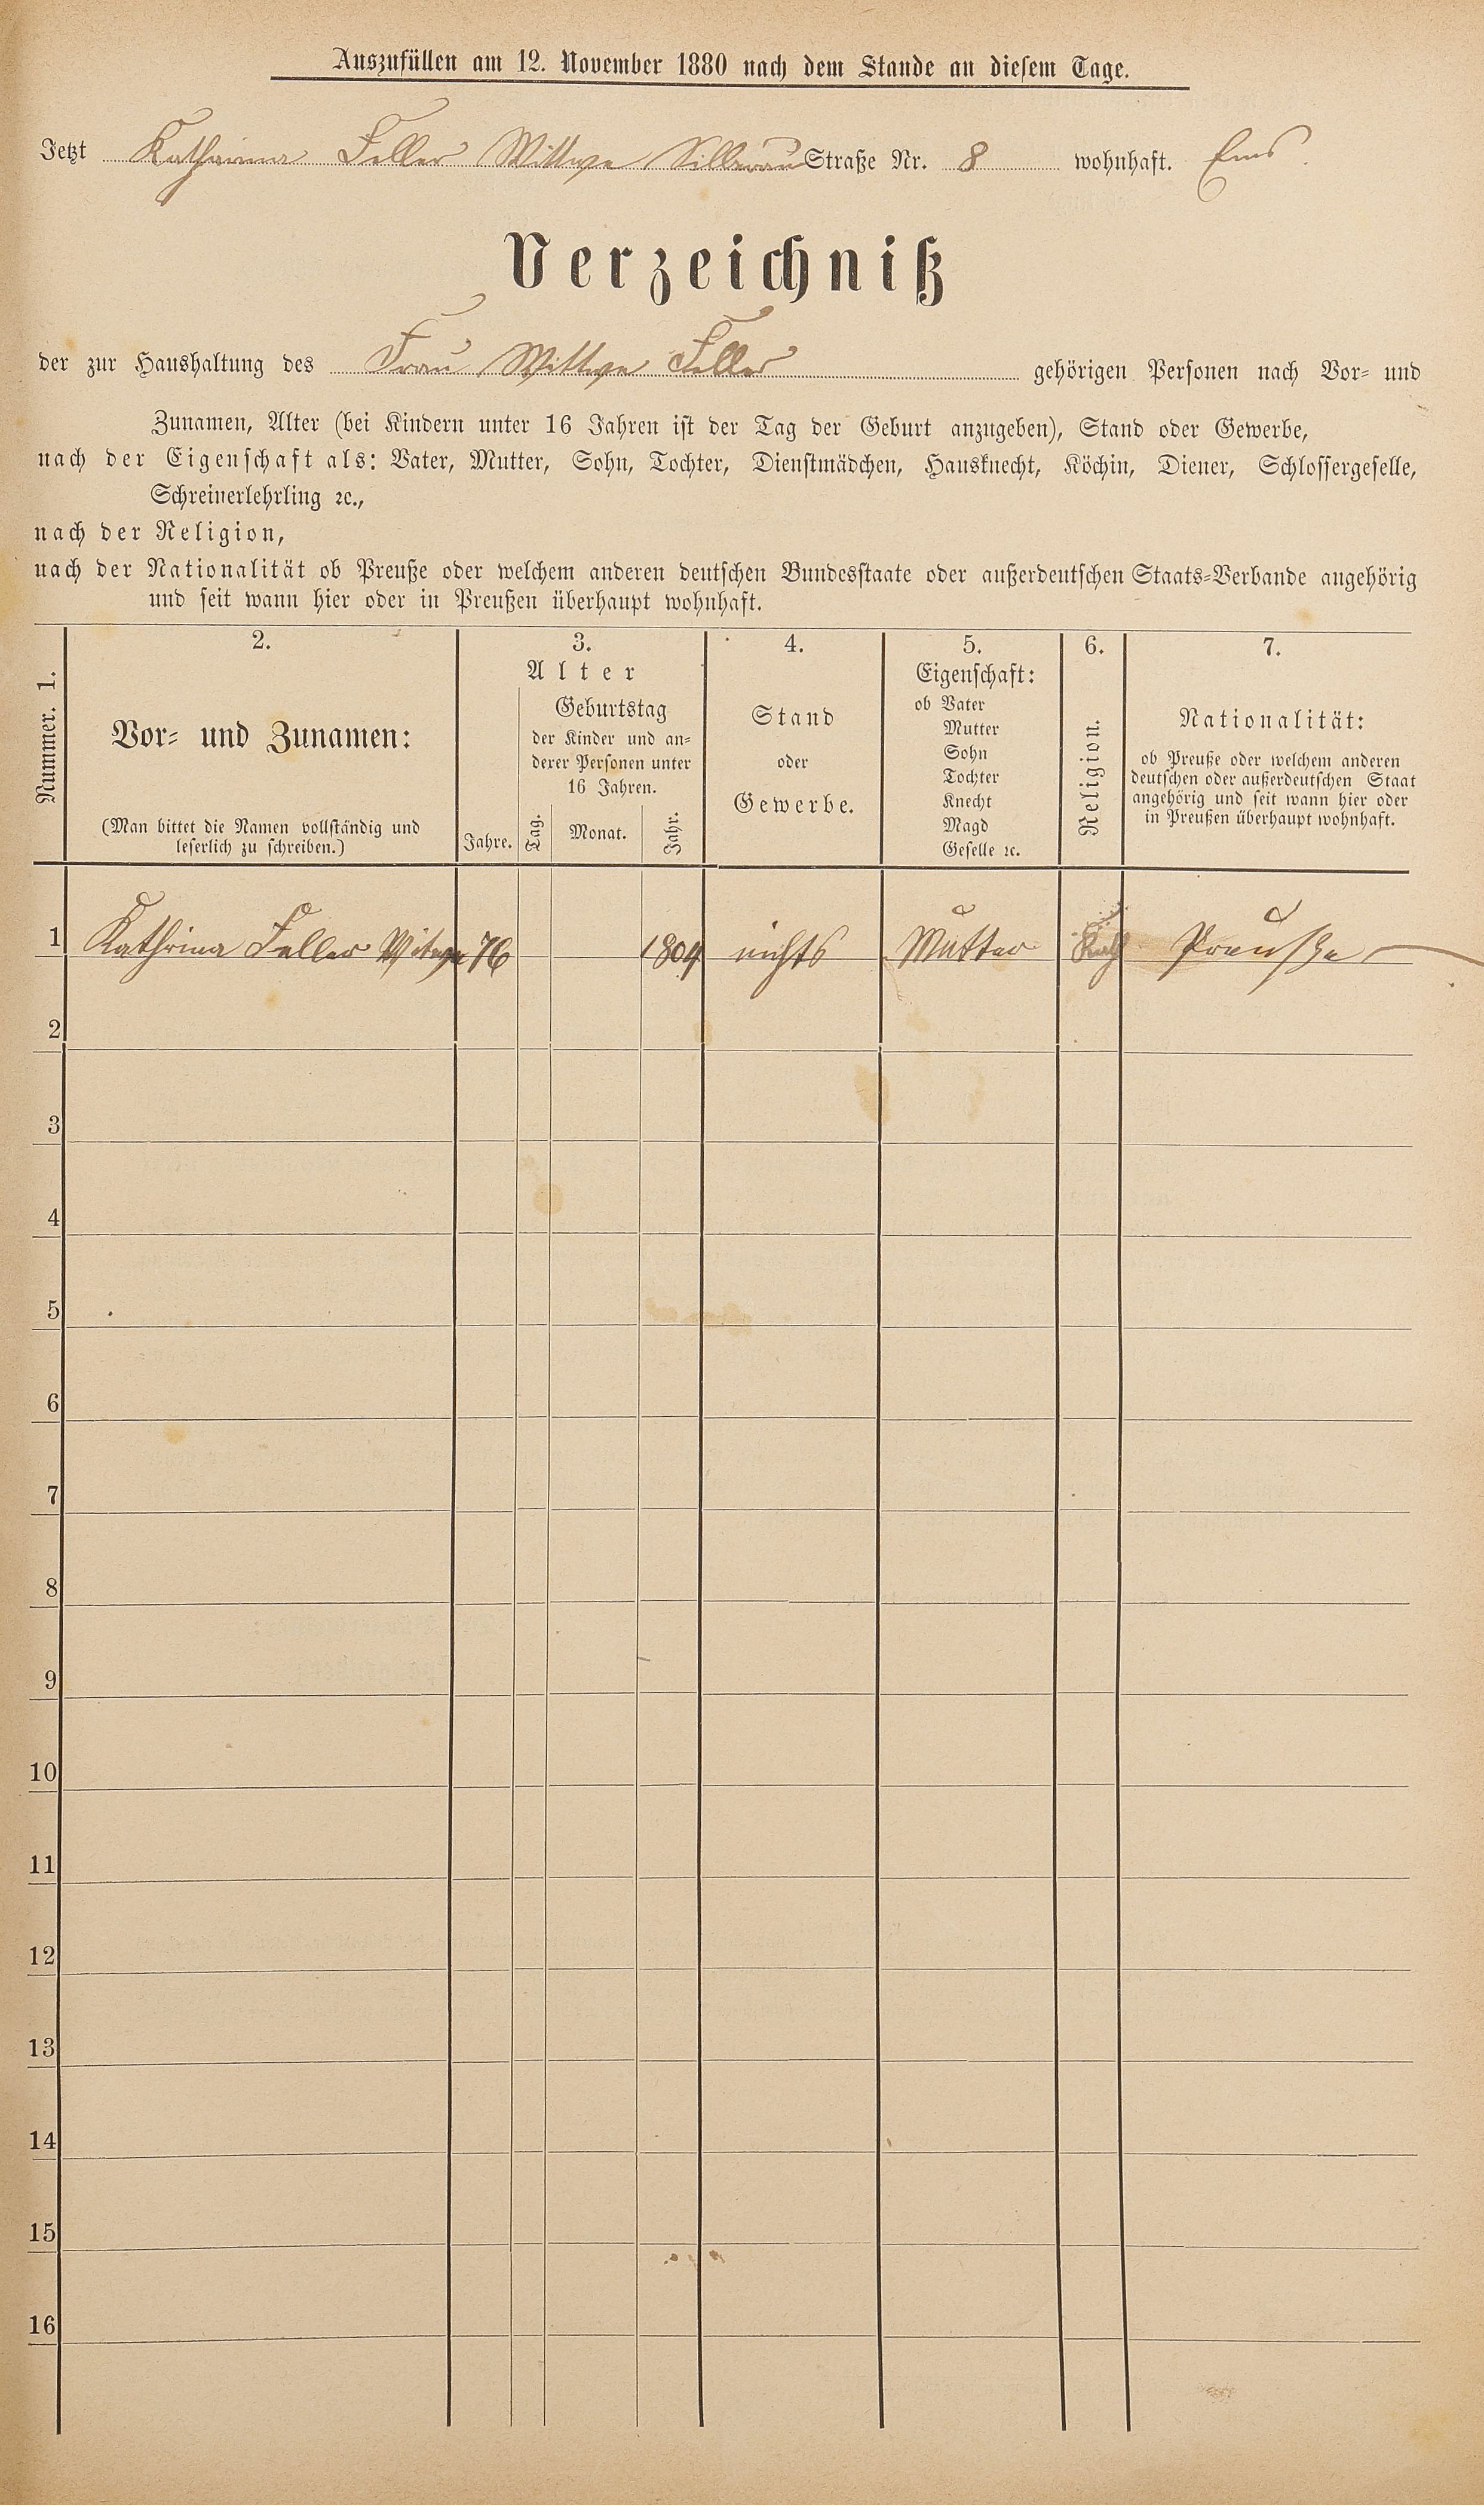 Auszufüllen am 12. November 1880 nach dem Stande an diesem Tage.
Jetzt Katharina Feller Wittwe Silberau Straße Nr. 8 wohnhaft. Ems.
Verzeichniß
der zur Haushaltung des Frau Wittwe Feller gehörigen Personen nach Vor- und
Zunamen, Alter (bei Kindern unter 16 Jahren ist der Tag der Geburt anzugeben), Stand oder Gewerbe,
nach der Eigenschaft als: Vater, Mutter, Sohn, Tochter, Dienstmädchen, Hausknecht, Köchin, Diener, Schlossergeselle,
Schreinerlehrling ꝛc.,
nach der Religion,
nach der Nationalität ob Preuße oder welchem anderen deutschen Bundesstaate oder außerdeutschen Staats-Verbande angehörig
und seit wann hier oder in Preußen überhaupt wohnhaft.
Nummer. 1.
2.
Vor- und Zunamen:
(Man bittet die Namen vollständig und
leserlich zu schreiben.)
3.
Alter
Jahre.
Geburtstag
der Kinder und an-
derer Personen unter
16 Jahren.
Tag. Monat. Jahr.
4.
Stand
oder
Gewerbe.
5.
Eigenschaft:
ob Vater
Mutter
Sohn
Tochter
Knecht
Magd
Geselle ꝛc.
6.
Religion.
7.
Nationalität:
ob Preuße oder welchem anderen
deutschen oder außerdeutschen Staat
angehörig und seit wann hier oder
in Preußen überhaupt wohnhaft.
1 Kathrina Feller Witwe 76 1804 nichts Mutter Kath Preuße
2
3
4
5
6
7
8
9
10
11
12
13
14
15
16